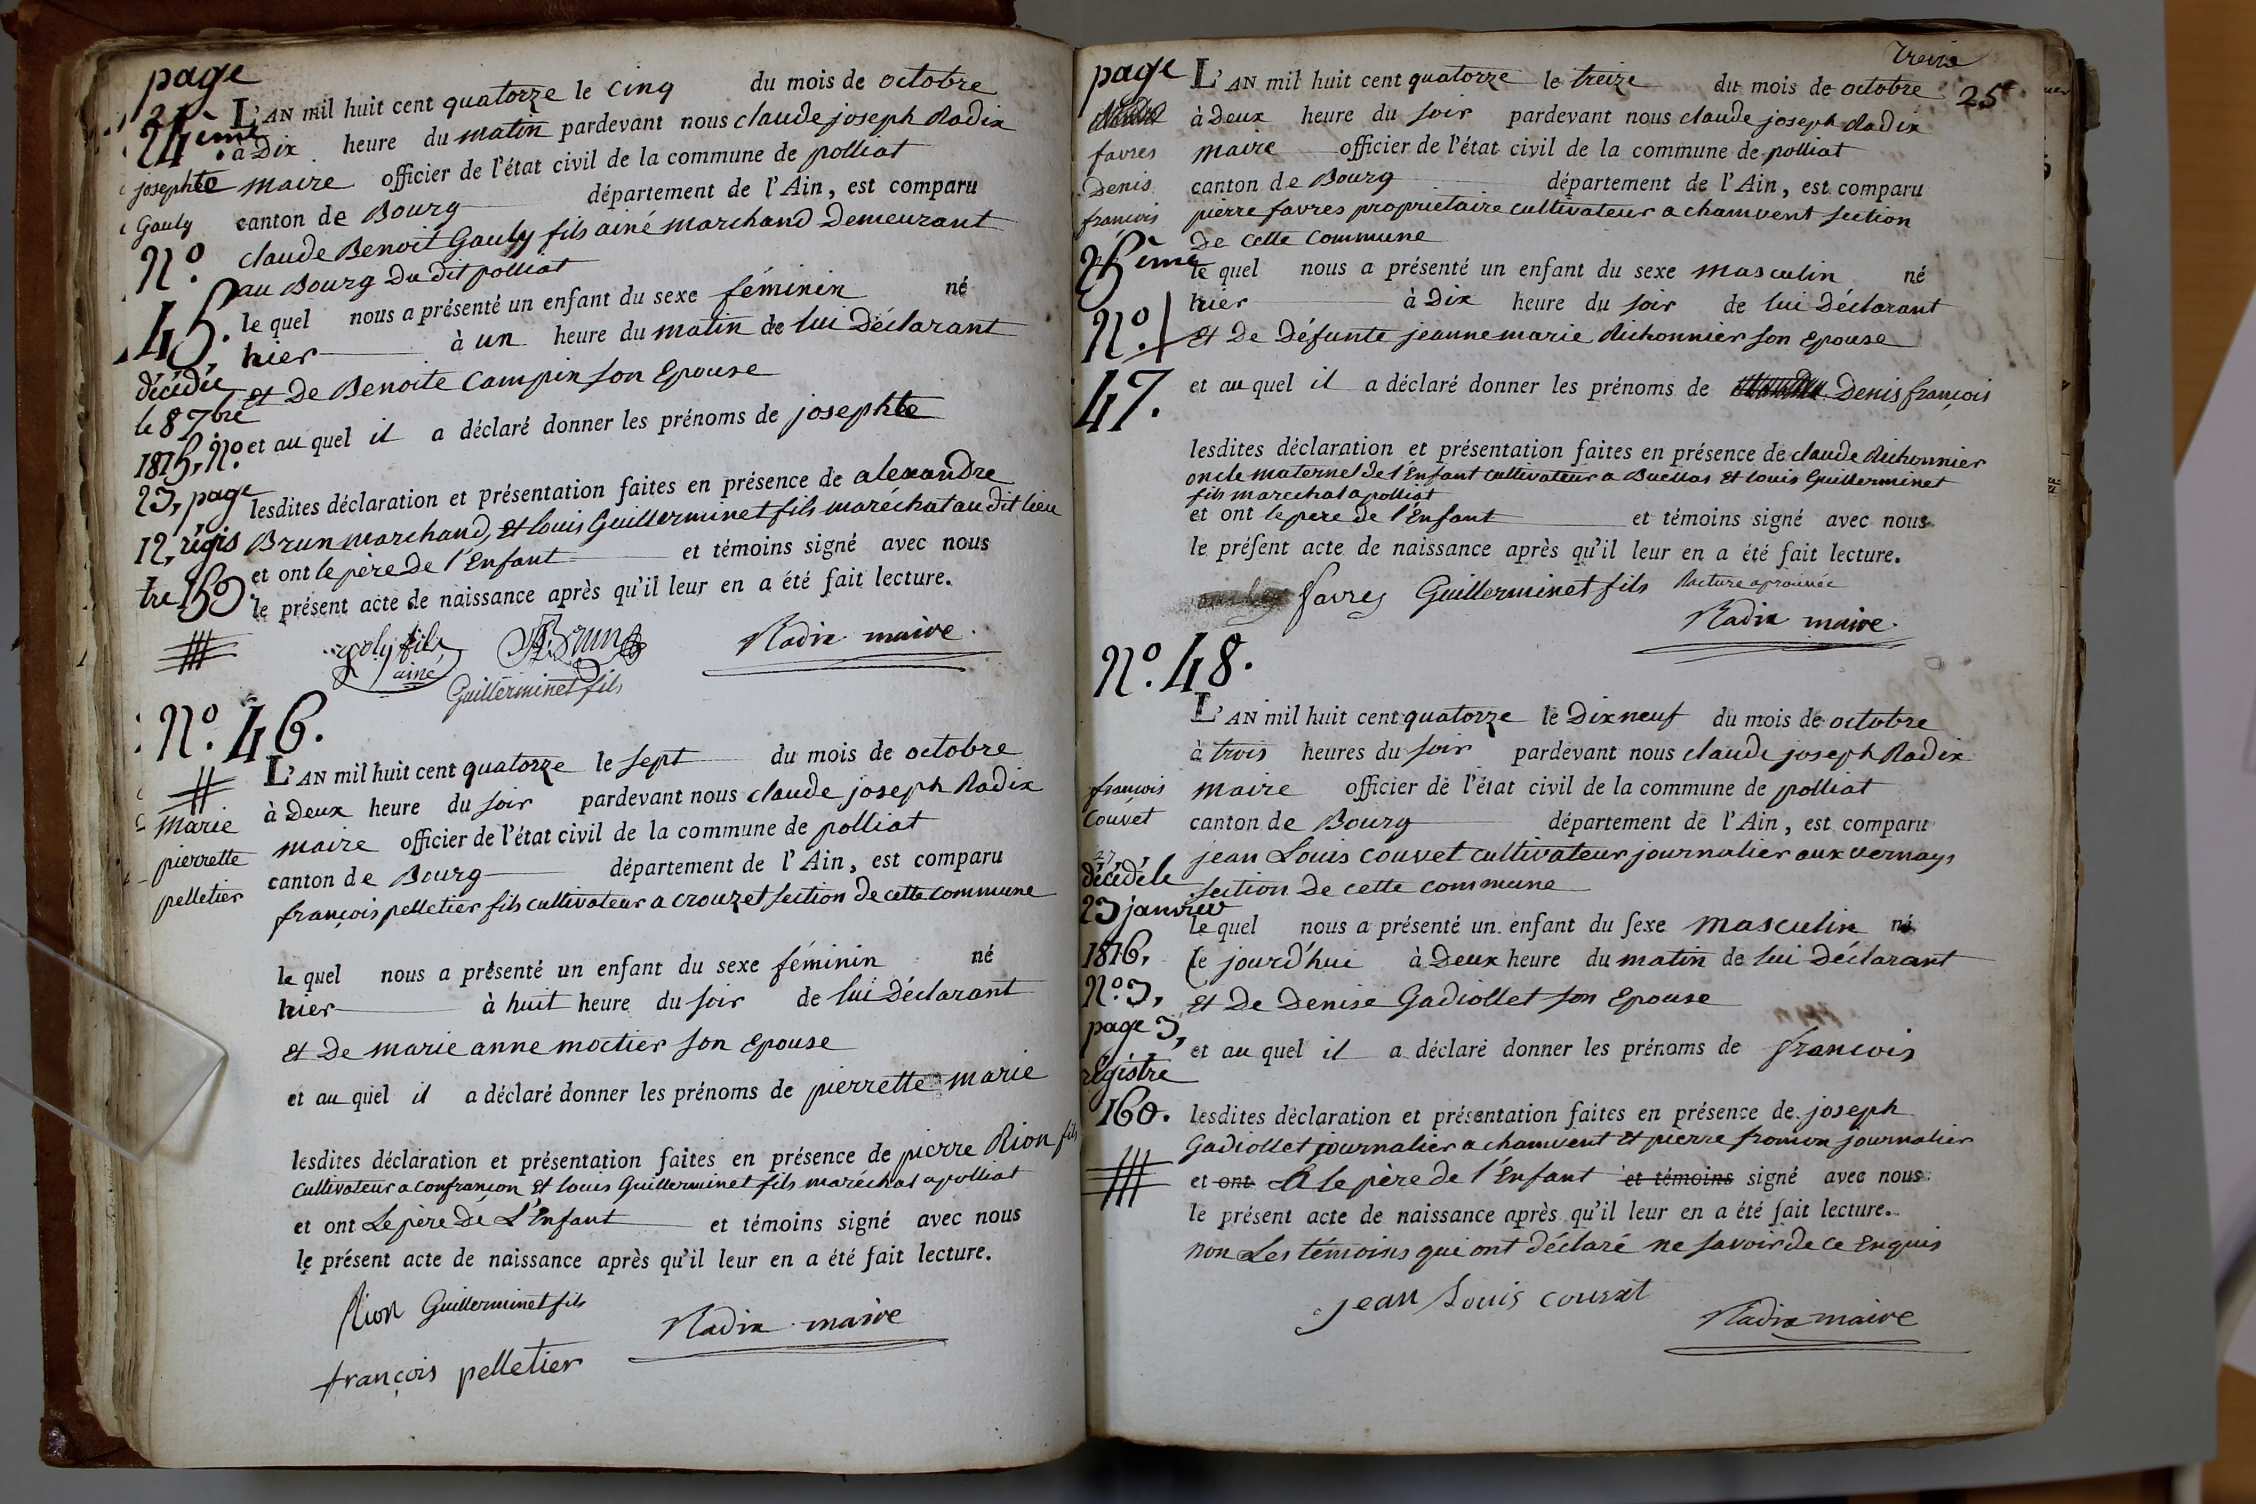 page
24ème
josephte
Gauly
N.º
45.
décédée
le 8 7bre
1815, N.º
23, page
12, régis
tre 159
L'AN mil huit cent quatorze le cinq du mois de octobre
à Dix heure du matin pardevant nous claude joseph Radix
maire officier de l'état civil de la commune de polliat
canton de Bourg département de l'Ain, est comparu
claude Benoit Gauly fils ainé marchand Demeurant
au Bourg Du dit polliat
le quel nous a présenté un enfant du sexe féminin né
hier à un heure du matin de lui Déclarant
et De Benoite Campin son Epouse
et au quel il a déclaré donner les prénoms de josephte
lesdites déclaration et présentation faites en présence de alexandre
Brun marchand, et louis Guillerminet fils maréchal au dit lieu
et ont le père De l'Enfant et témoins signé avec nous
le présent acte de naissance après qu'il leur en a été fait lecture.
goly fils
ainé
Brun
Radix maire
Guillerminet fils
N.º 46.
marie
pierrette
pelletier
L'AN mil huit cent quatorze le sept du mois de octobre
à Deux heure du soir pardevant nous claude joseph Radix
maire officier de l'état civil de la commune de polliat
canton de Bourg département de l'Ain, est comparu
françois pelletier fils cultivateur a crouzet section de cette commune
le quel nous a présenté un enfant du sexe féminin né
hier à huit heure du soir de lui Déclarant
et De marie anne moctier son Epouse
et au quel il a déclaré donner les prénoms de pierrette marie
lesdites déclaration et présentation faites en présence de pierre Rion fils
cultivateur a confrançon et louis Guillerminet fils maréchal a polliat
et ont Le père De L'Enfant et témoins signé avec nous
le présent acte de naissance après qu'il leur en a été fait lecture.
Rion Guillerminet fils
Radix maire
françois pelletier
treize
25e
page
favres
Denis
françois
25ème
N.º
47.
L'AN mil huit cent quatorze le treize du mois de octobre
à Deux heure du soir pardevant nous claude joseph Radix
maire officier de l'état civil de la commune de polliat
canton de Bourg département de l'Ain, est comparu
pierre favres proprietaire cultivateur a chamvent section
De cette commune
le quel nous a présenté un enfant du sexe masculin né
hier à Dix heure du soir de lui Déclarant
et De Défunte jeanne marie Richonnier son Epouse
et au quel il a déclaré donner les prénoms de Denis françois
lesdites déclaration et présentation faites en présence de claude Richonnier
oncle maternel de l'Enfant cultivateur a Buellas et louis Guillerminet
fils marechal a polliat
et ont le pere de l'Enfant et témoins signé avec nous
le présent acte de naissance après qu'il leur en a été fait lecture.
favres Guillerminet fils Rature aprouvée
Radix maire.
N.º 48.
françois
Couvet
décédé le
23 janvier
1816,
N.º 3,
page 3,
régistre
160.
L'AN mil huit cent quatorze le Dix neuf du mois de octobre
à trois heures du soir pardevant nous claude joseph Radix
maire officier de l'état civil de la commune de polliat
canton de Bourg département de l'Ain, est comparu
jean Louis couvet cultivateur journalier aux vernays
section De cette commune
le quel nous a présenté un enfant du sexe masculin né
Ce jourd'hui à Deux heure du matin de lui Déclarant
et De Denise Gadiollet son Epouse
et au quel il a déclaré donner les prénoms de françois
lesdites déclaration et présentation faites en présence de joseph
Gadiollet journalier a chamvent et pierre fromon journalier
et ont a le père de l'Enfant et témoins signé avec nous
le présent acte de naissance après qu'il leur en a été fait lecture.
non Les témoins qui ont déclaré ne savoir de ce Enquis
jean Louis couvet
Radix maire